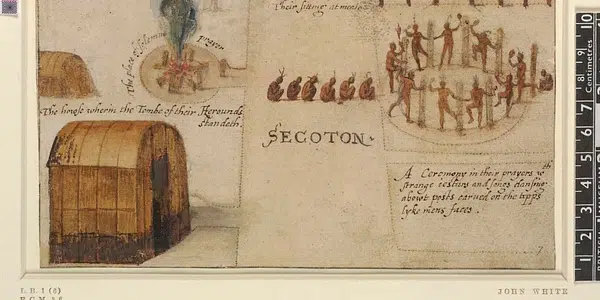 Their sitting at meate
The place of solemne prayer
The howse wherin the Tombe of their Herounds
standeth.
SECOTON.
A Ceremony in their prayers wth
strange iestures and songs dansing
abowt posts carved on the topps
lyke mens faces.
7
I. B. 1 (6)
JOHN WHITE
1 2 3 4 5 6 7 8 9 10
Centimetres